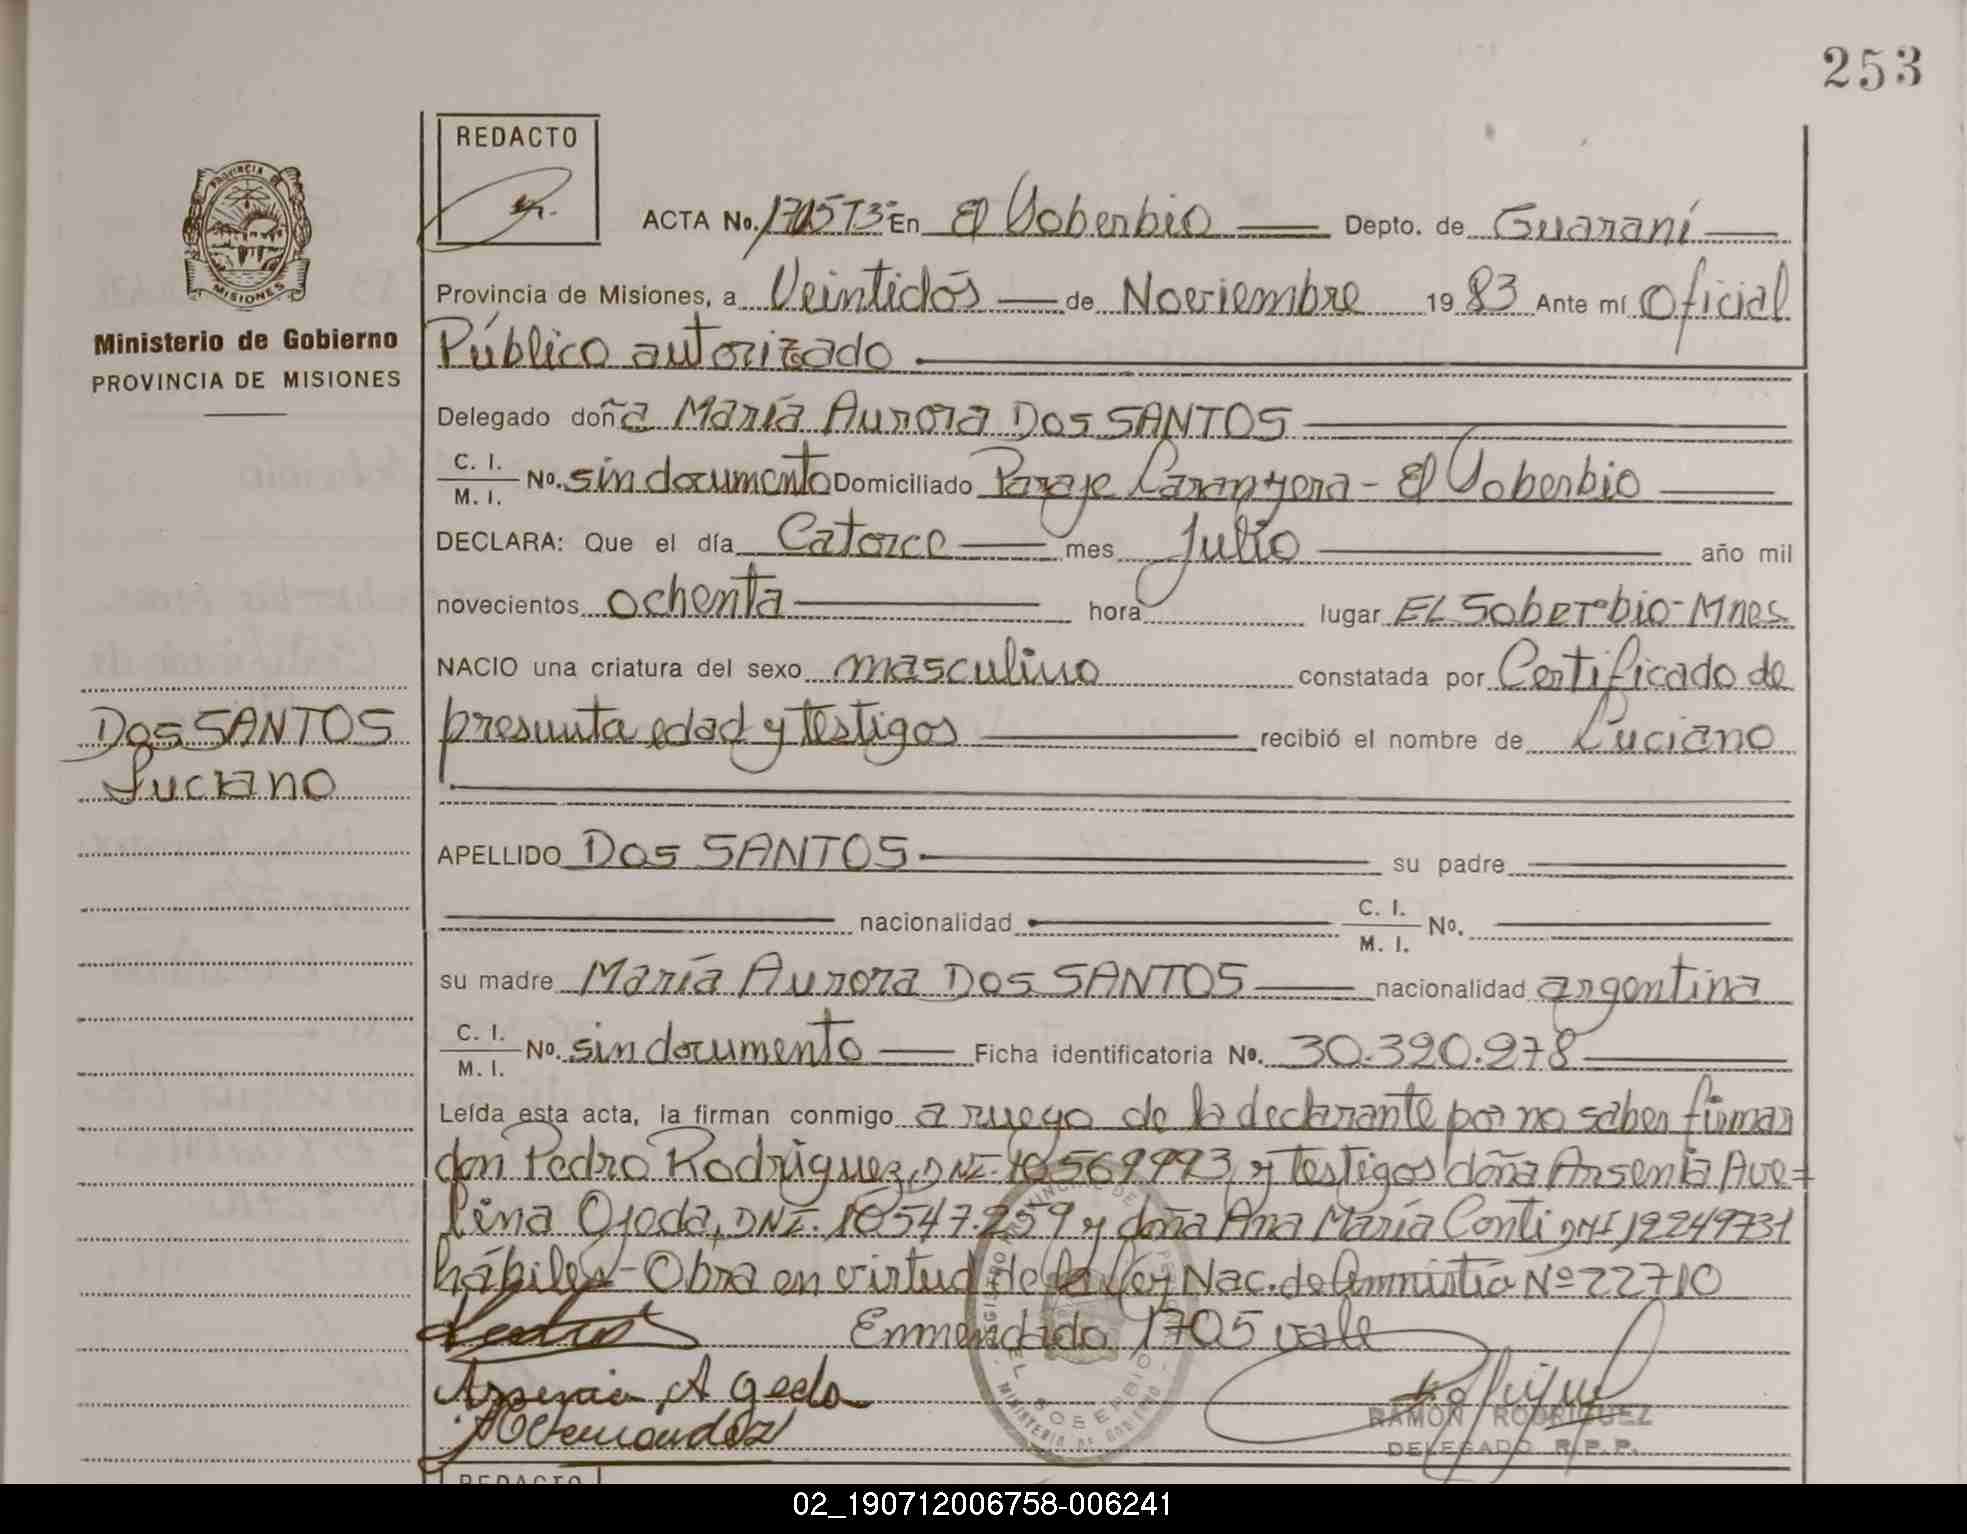 253
REDACTO
PROVINCIA DE
MISIONES
Ministerio de Gobierno
PROVINCIA DE MISIONES
ACTA No. 1705T3º En El Soberbio Depto. de Guaraní
Provincia de Misiones, a Veintidós de Noviembre 1983 Ante mí Oficial
Público autorizado
Delegado doña María Aurora Dos SANTOS
C. I.
M. I. No. sin documento Domiciliado Paraje Laranyera - El Soberbio
DECLARA: Que el día Catorce mes Julio año mil
novecientos ochenta hora lugar EL Soberbio - Mnes.
NACIO una criatura del sexo masculino constatada por Certificado de
presunta edad y testigos recibió el nombre de Luciano
Dos SANTOS
Luciano
APELLIDO Dos SANTOS su padre
nacionalidad C. I.
M. I. No.
su madre María Aurora Dos SANTOS nacionalidad argentina
C. I.
M. I. No. sin documento Ficha identificatoria No. 30.320.278
Leída esta acta, la firman conmigo a ruego de la declarante por no saber firmar
don Pedro Rodriguez, DNI. 10569993 y testigos doña Arsenia Ave=
lina Ojeda, DNI. 10547.259 y doña Ana María Conti DNI 12249731
hábiles - Obra en virtud de la Ley Nac. de Amnistía Nº 22710
Enmendado 1705 vale
Arsenia A Ojeda
RAMON RODRIGUEZ
DELEGADO R.P.P.
EL SOBERBIO
MINISTERIO DE GOBIERNO
REDACTO
02_190712006758-006241